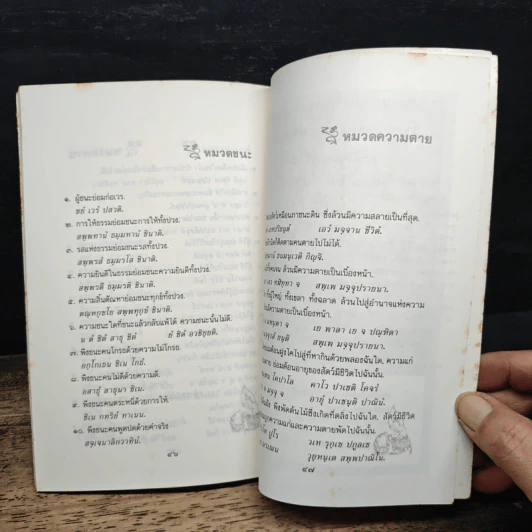 หมวดชนะ
๑. ผู้ชนะย่อมก่อเวร.
ชยํ เวรํ ปสวติ.
๒. การให้ธรรมย่อมชนะการให้ทั้งปวง.
สพฺพทานํ ธมฺมทานํ ชินาติ.
๓. รสแห่งธรรมย่อมชนะรสทั้งปวง.
สพฺพรสํ ธมฺมรโส ชินาติ.
๔. ความยินดีในธรรมย่อมชนะความยินดีทั้งปวง.
สพฺพรตึ ธมฺมรติ ชินาติ.
๕. ความสิ้นตัณหาย่อมชนะทุกข์ทั้งปวง.
ตณฺหกฺขโย สพฺพทุกฺขํ ชินาติ.
๖. ความชนะใดที่ชนะแล้วกลับแพ้ได้ ความชนะนั้นไม่ดี.
น ตํ ชิตํ สาธุ ชิตํ ยํ ชิตํ อวชิยฺยติ.
๗. พึงชนะคนโกรธด้วยความไม่โกรธ.
อกฺโกเธน ชิเน โกธํ.
๘. พึงชนะคนไม่ดีด้วยความดี.
อสาธุํ สาธุนา ชิเน.
๙. พึงชนะคนตระหนี่ด้วยการให้.
ชิเน กทริยํ ทาเนน.
๑๐. พึงชนะคนพูดปดด้วยคำจริง
สจฺเจนาลิกวาทินํ.
๔๖
หมวดความตาย
เหมือนภาชนะดิน ซึ่งล้วนมีความสลายเป็นที่สุด.
เอวํ มจฺจาน ชีวิตํ.
ติดตามคนตายไปไม่ได้.
กิญฺจิ.
ล้วนมีความตายเป็นเบื้องหน้า.
จ สพฺเพ มจฺจุปรายนา.
ผู้ใหญ่ ทั้งเขลา ทั้งฉลาด ล้วนไปสู่อำนาจแห่งความ
มีความตายเป็นเบื้องหน้า.
จ เย พาลา เย จ ปณฺฑิตา
สพฺเพ มจฺจุปรายนา.
ฝูงโคไปสู่ที่หากินด้วยพลองฉันใด, ความแก่
ย่อมต้อนอายุของสัตว์มีชีวิตไปฉันนั้น.
โคปาโล คาโว ปาเชติ โคจรํ
มจฺจุ จ อายุํ ปาเชนฺติ ปาณินํ.
พึงพัดต้นไม้ซึ่งเกิดที่ตลิ่งไปฉันใด, สัตว์มีชีวิต
ความแก่และความตายพัดไปฉันนั้น.
ปูโร วเห รุกฺเข ปกูลเช
วุยฺหนฺเต สพฺพปาณิโน.
๔๗